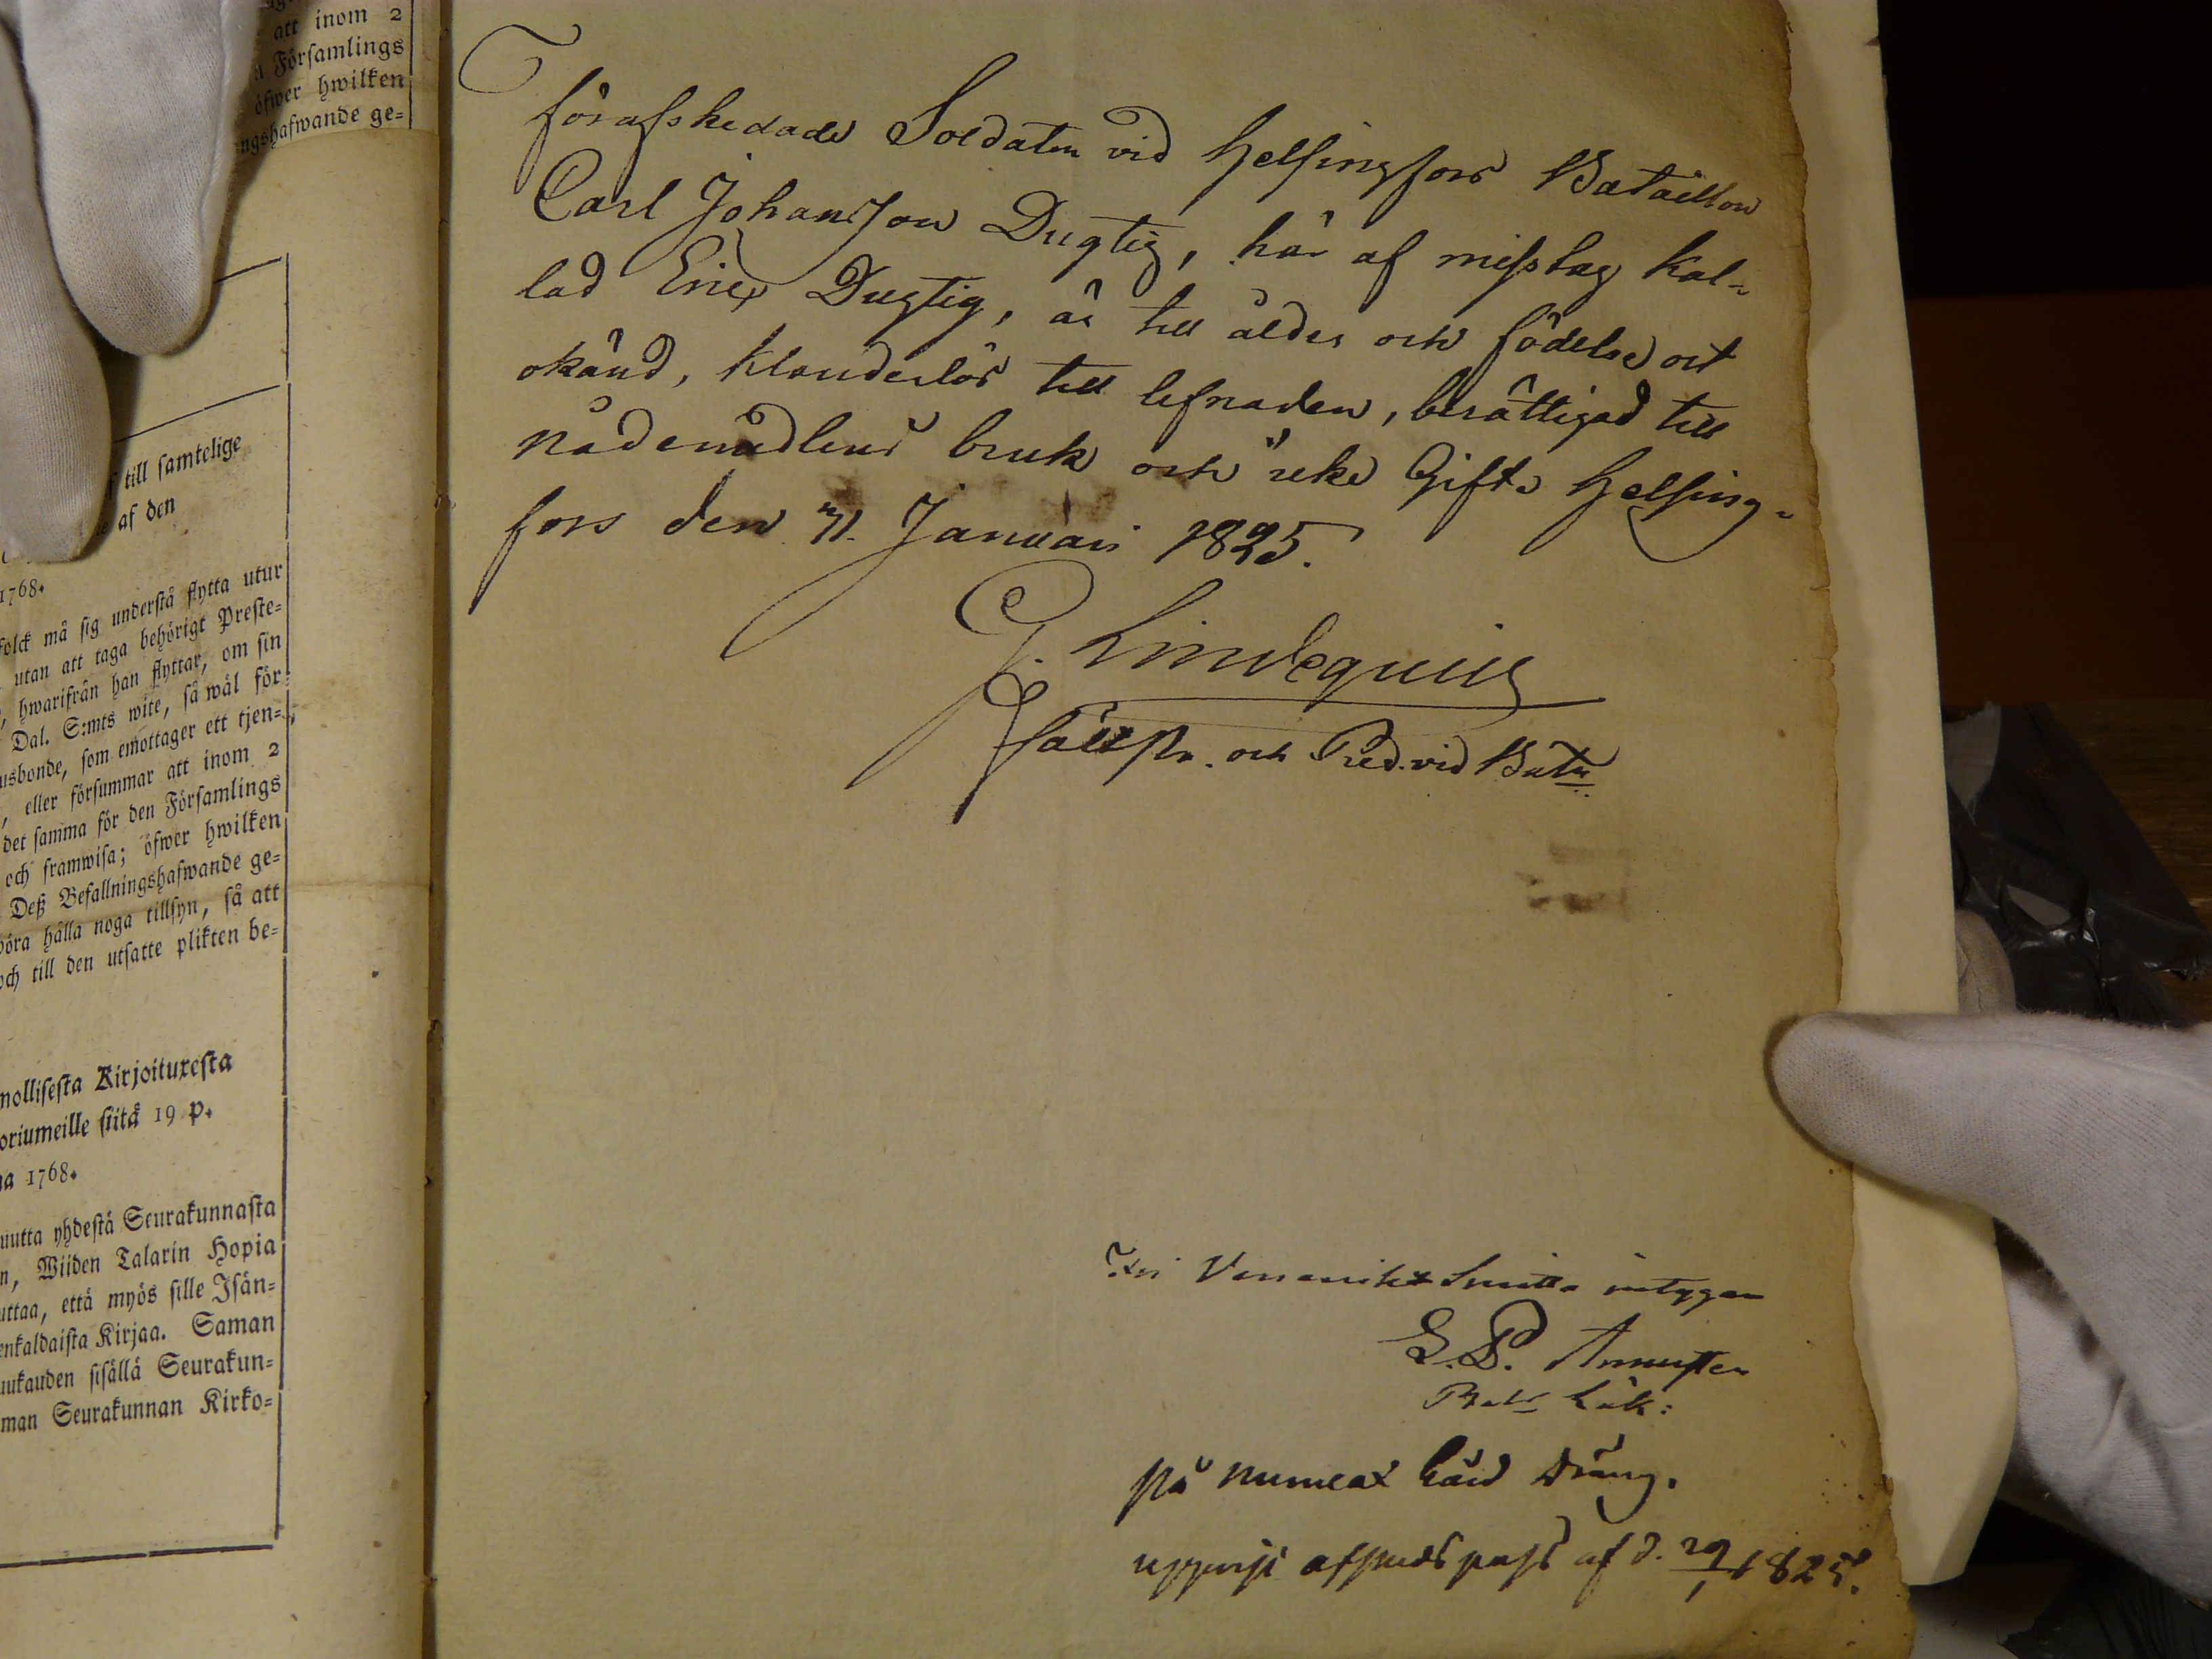 att inom 2
Församlings
öfwer hwilken
ngshafwande ge=
till samtelige
af den
1768.
folck må sig understå flytta utur
utan att taga behörigt Preste=
, hwarifrån han flyttar, om sin
Dal. S:mts wite, så wäl för=
usbonde, som emottager ett tjen=
, eller försummar att inom 2
det samma för den Församlings
och framwisa; öfwer hwilken
Deß Befallningshafwande ge=
böra hålla noga tillsyn, så att
och till den utsatte plikten be=
mollisesta Kirjoituxesta
oriumeille siitä 19 p.
na 1768.
uutta yhdestä Seurakunnasta
n, Wiiden Talarin Hopia
uttaa, että myös sille Isän=
enkaldaista Kirjaa. Saman
uukauden sisällä Seurakun=
man Seurakunnan Kirko=
förafskedade Soldaten vid Helsingfors Bataillon
Carl Johansson Dugtig, här af misstag kal-
lad Eric Dugtig, är till ålder och födelse ort
okänd, klanderlös till lefnaden, berättigad till
nådemedlens bruk och icke Gift. Helsing-
fors den 31. Januari 1825.
G. Lindequist
fält Pr. och Pred. vid Batn.
Fri Venerisk Smitta intygar
Batns Läk:
På numera Dräng.
uppvist afskeds pass af d. 29/1 1825.